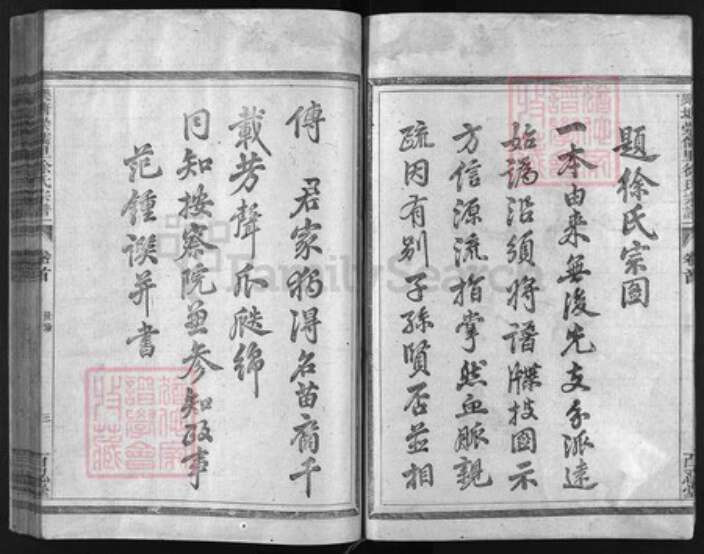 題徐氏宗圖
一本由来無後先支分派遠
始譌沿須將譜牒披圖示
方信源流指掌然血脈親
疏因有别子孫賢否並相
傳 君家猶得名苗裔千
載芳聲瓜瓞綿
同知按察院兼参知政事
范鍾譔并書
卷首
卷首
三
FamilySearch